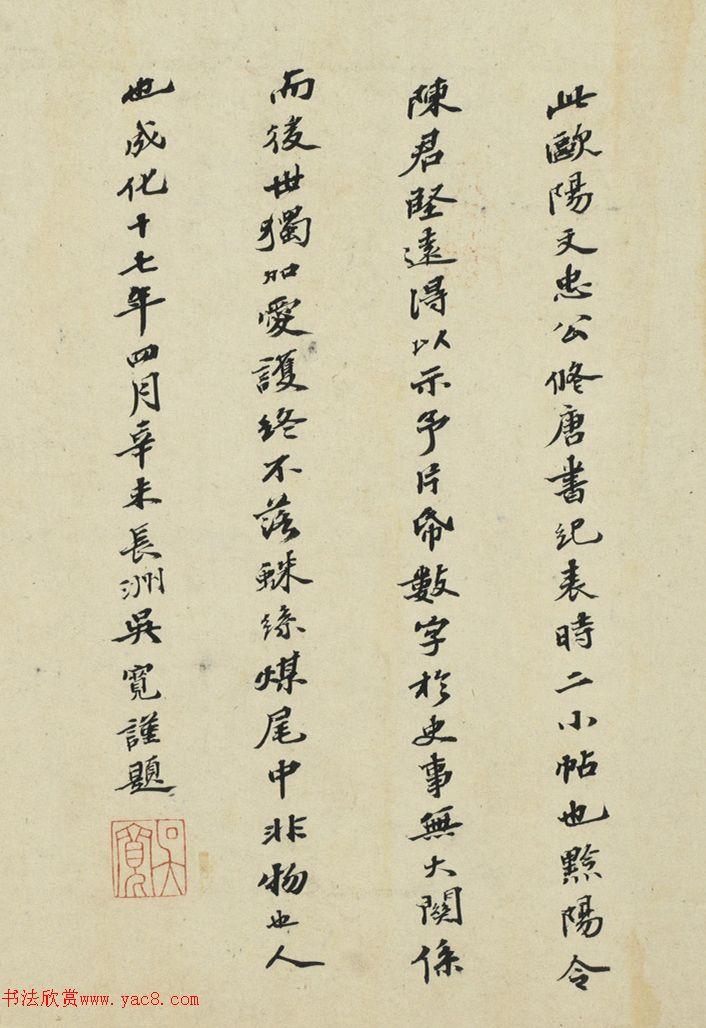 此歐陽文忠公脩唐書紀表時二小帖也黟陽令
陳君堅遠得以示予片帋數字於史事無大關係
而後世獨加愛護終不落蛛絲煤尾中非物也人
也成化十七年四月辛未長洲吳寬謹題
吳寬
书法欣赏www.yac8.com